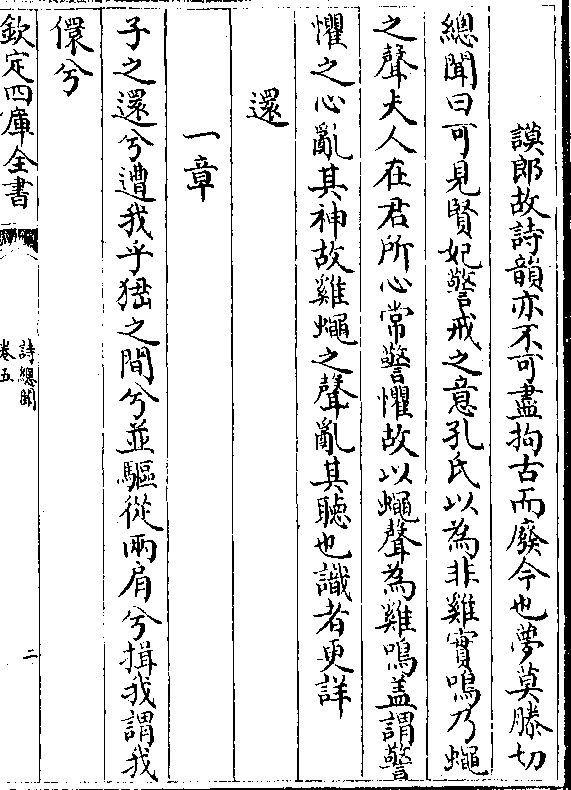 謨郎故詩韻亦不可盡拘古而廢今也夢莫滕切
總聞曰可見賢妃警戒之意孔氏以為非雞實鳴乃蠅
之聲夫人在君所心常警懼故以蠅聲為雞鳴盖謂警
懼之心亂其神故雞蠅之聲亂其聽也識者更詳
還
一章
子之還兮遭我乎峱之間兮並驅從兩肩兮揖我謂我
儇兮
欽定四庫全書
詩總聞
卷五
二